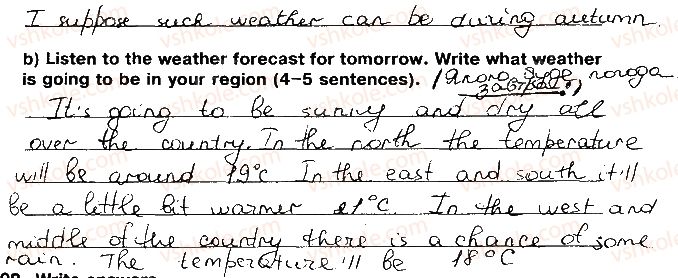 I suppose such weather can be during autumn.
b) Listen to the weather forecast for tomorrow. Write what weather
is going to be in your region (4–5 sentences). (Якого буде погода
завтра?)
It's going to be sunny and dry all
over the country. In the north the temperature
will be around 19°C In the east and south it'll
be a little bit warmer 21°C. In the west and
middle of the country there is a chance of some
rain. The temperature'll be 18°C
Write answers